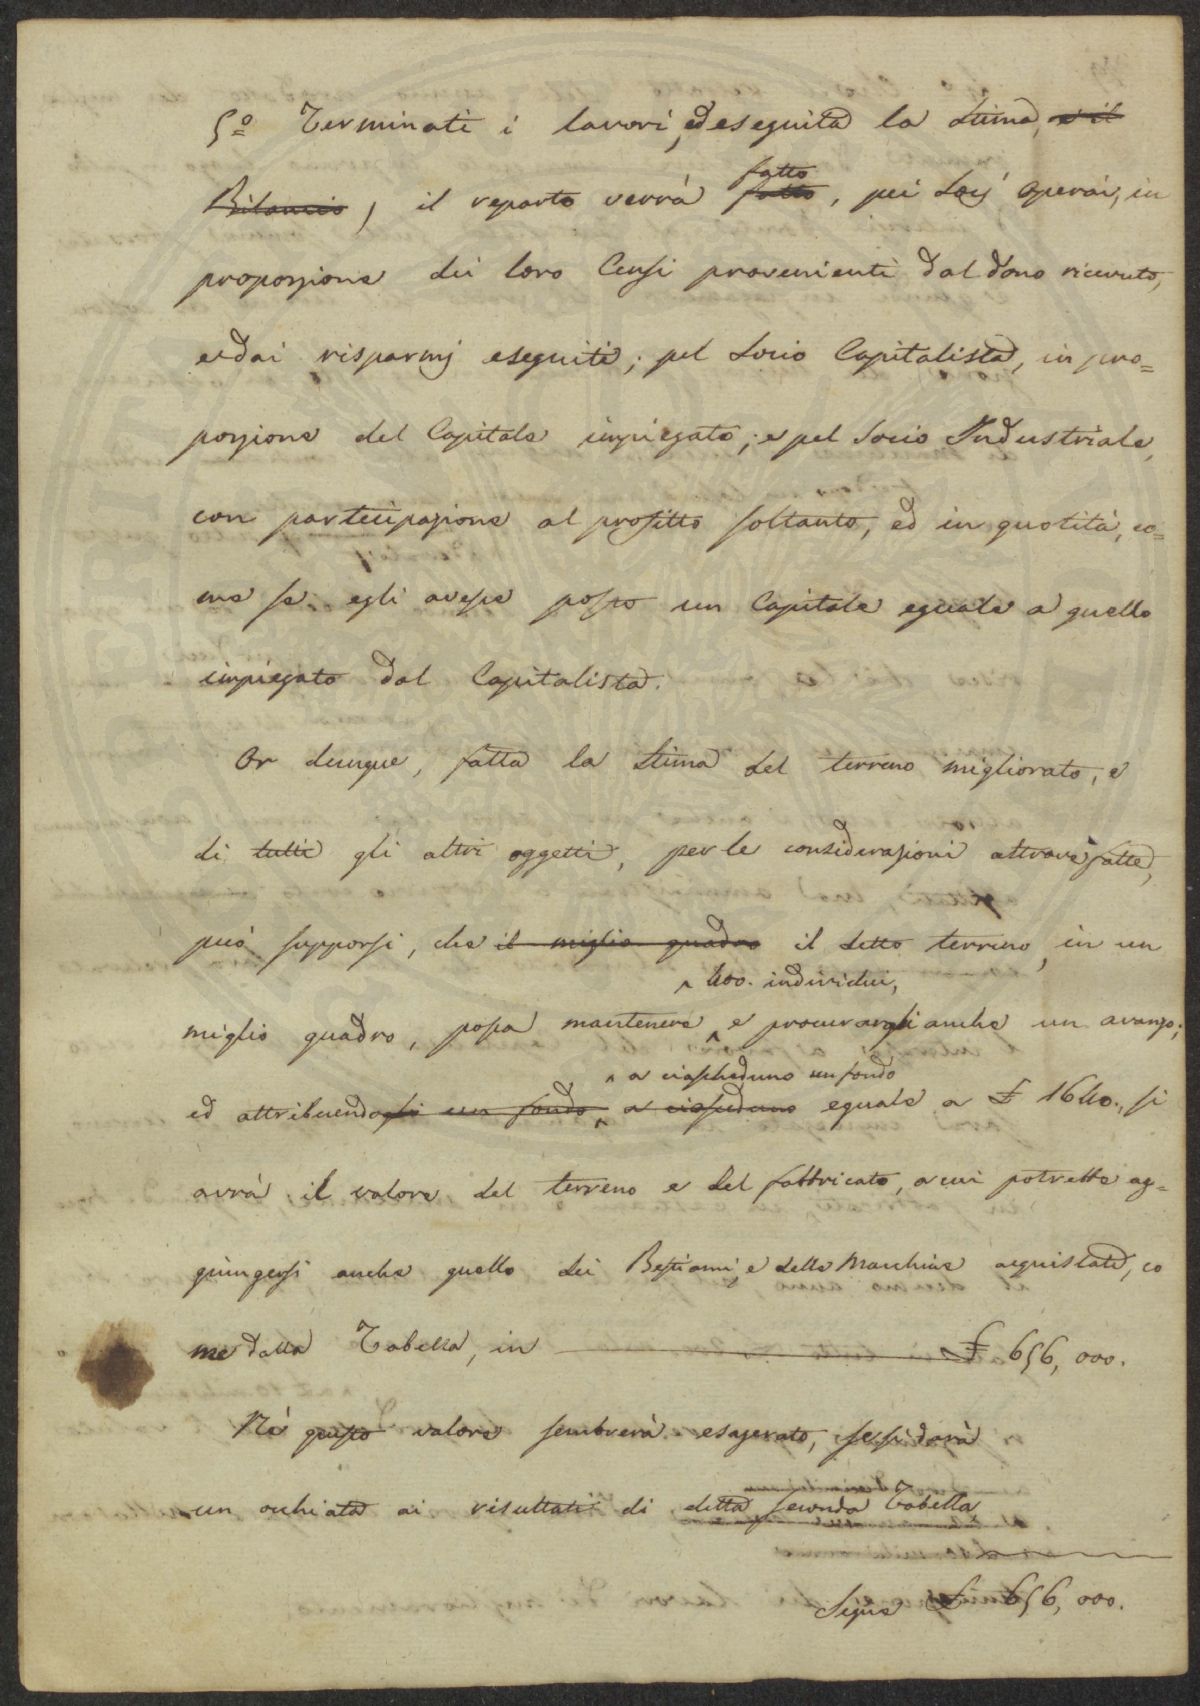 5.º Terminati i lavori, ed eseguita la Stima, e il
Bilancio, il reparto verrà fatto fatto, pei Socj Operai, in
proporzione dei loro Censi provenienti dal dono ricevuto,
e dai risparmj eseguiti; pel Socio Capitalista, in pro=
porzione del Capitale impiegato; e pel Socio Industriale,
con partecipazione al profitto soltanto, ed in quotità, co=
me se egli avesse posto un Capitale eguale a quello
impiegato dal Capitalista.
Or dunque, fatta la Stima del terreno migliorato, e
di tutti gli altri oggetti, per le considerazioni altrove fatte,
può supporsi, che il miglio quadro il detto terreno, in un
400. individui,
miglio quadro, possa mantenere e procurargli anche un avanzo;
a ciascheduno un fondo
ed attribuendogli un fondo a ciascduno eguale a £ 1640., si
avrà il valore del terreno e del fabbricato, a cui potrebbe ag=
giungersi anche quello dei Bestiami, e delle Macchine acquistate, co
me dalla Tabella, in £ 656,000.
Nè questo valore sembrerà esagerato, se si darà
un occhiata ai risultati di detta seconda Tabella
Segue £ 656,000.